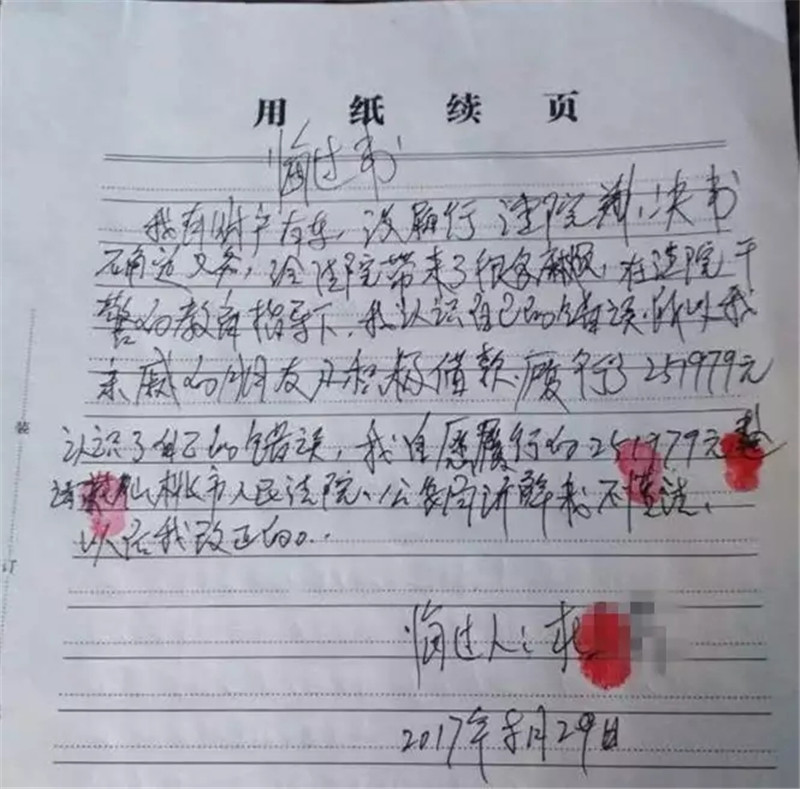 用纸续页
悔过书
我有财产有车，没履行法院判决书
确定义务，给法院带来了很多麻烦，在法院干
警的教育指导下，我认识自己的错误，所以我
亲戚的朋友及积极借款，履行了251979元
认识了自己的错误，我自愿履行的251979元整
仙桃市人民法院、公安局讲解我不懂法，
以后我改正的。..
悔过人：杜
2017年8月29日
装
订